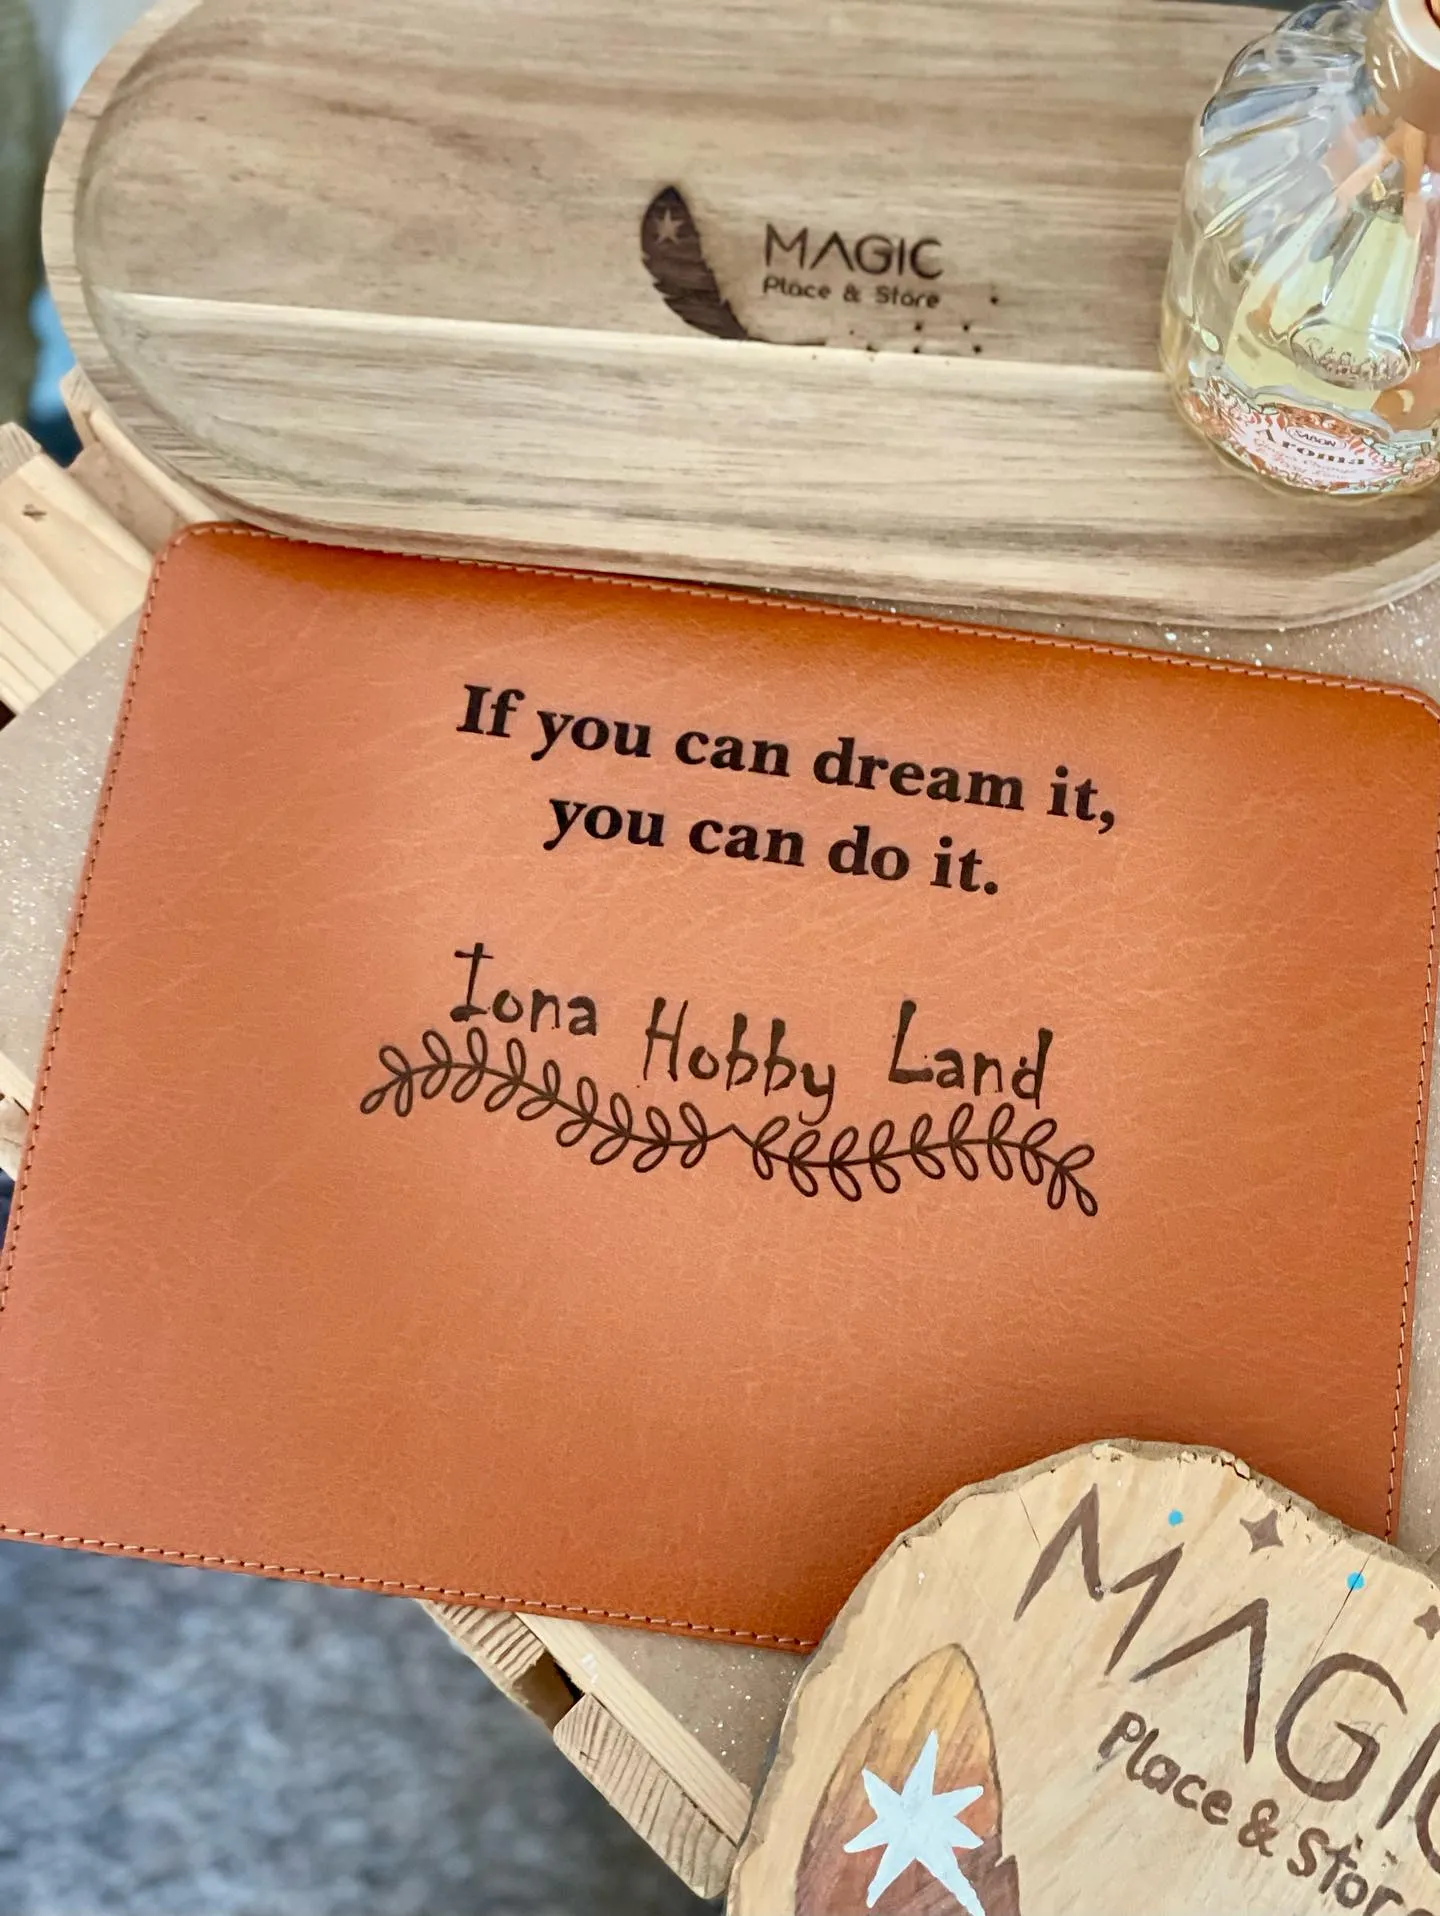 MAGIC
Place & Store
SABON
Aroma
If you can dream it,
you can do it.
Iona Hobby Land
MAGIC
Place & Store